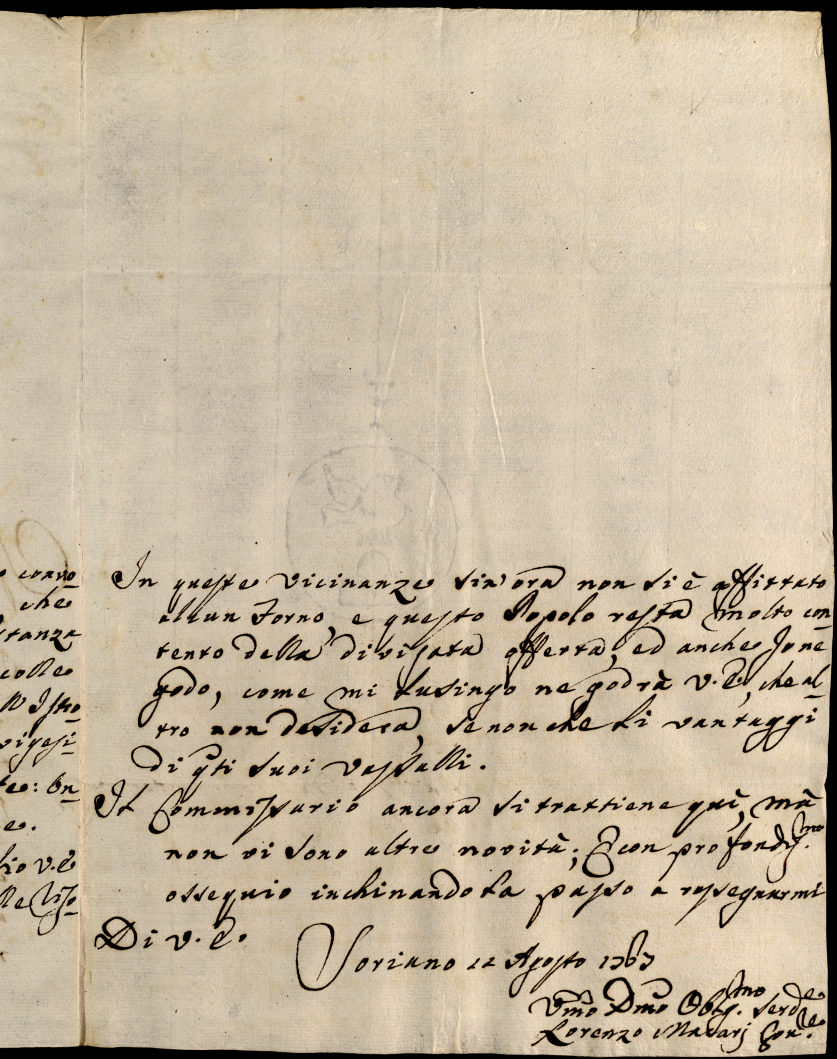 o conuo
che
stanza
colle
ll Istro
vigesi
te: On
e.
lio V.E.
In queste vicinanze sin'ora non si è affittato
alcun Forno, e questo Popolo resta molto con
tento della divisata offerta, ed anche Io ne
godo, come mi lusingo ne godrà V.E., che al
tro non desidera, se non che li vantaggi
di qti suoi Vassalli.
Il Commissario ancora si trattiene quì, mà
non vi sono altre novità; E con profondis.mo
ossequio inchinandola passo a rassegnarmi
Di V.E.
Soriano 12 Agosto 1767
Umo Dmo Oblig.mo Serd.e
Lorenzo